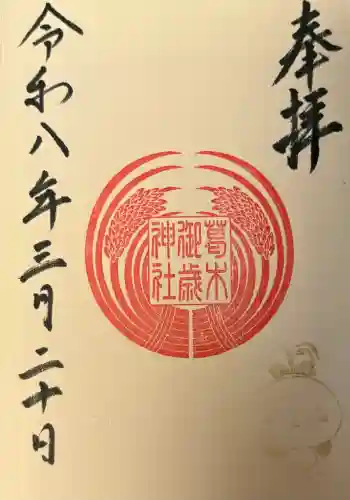 奉拝
葛木
御歳
神社
令和八年三月二十日